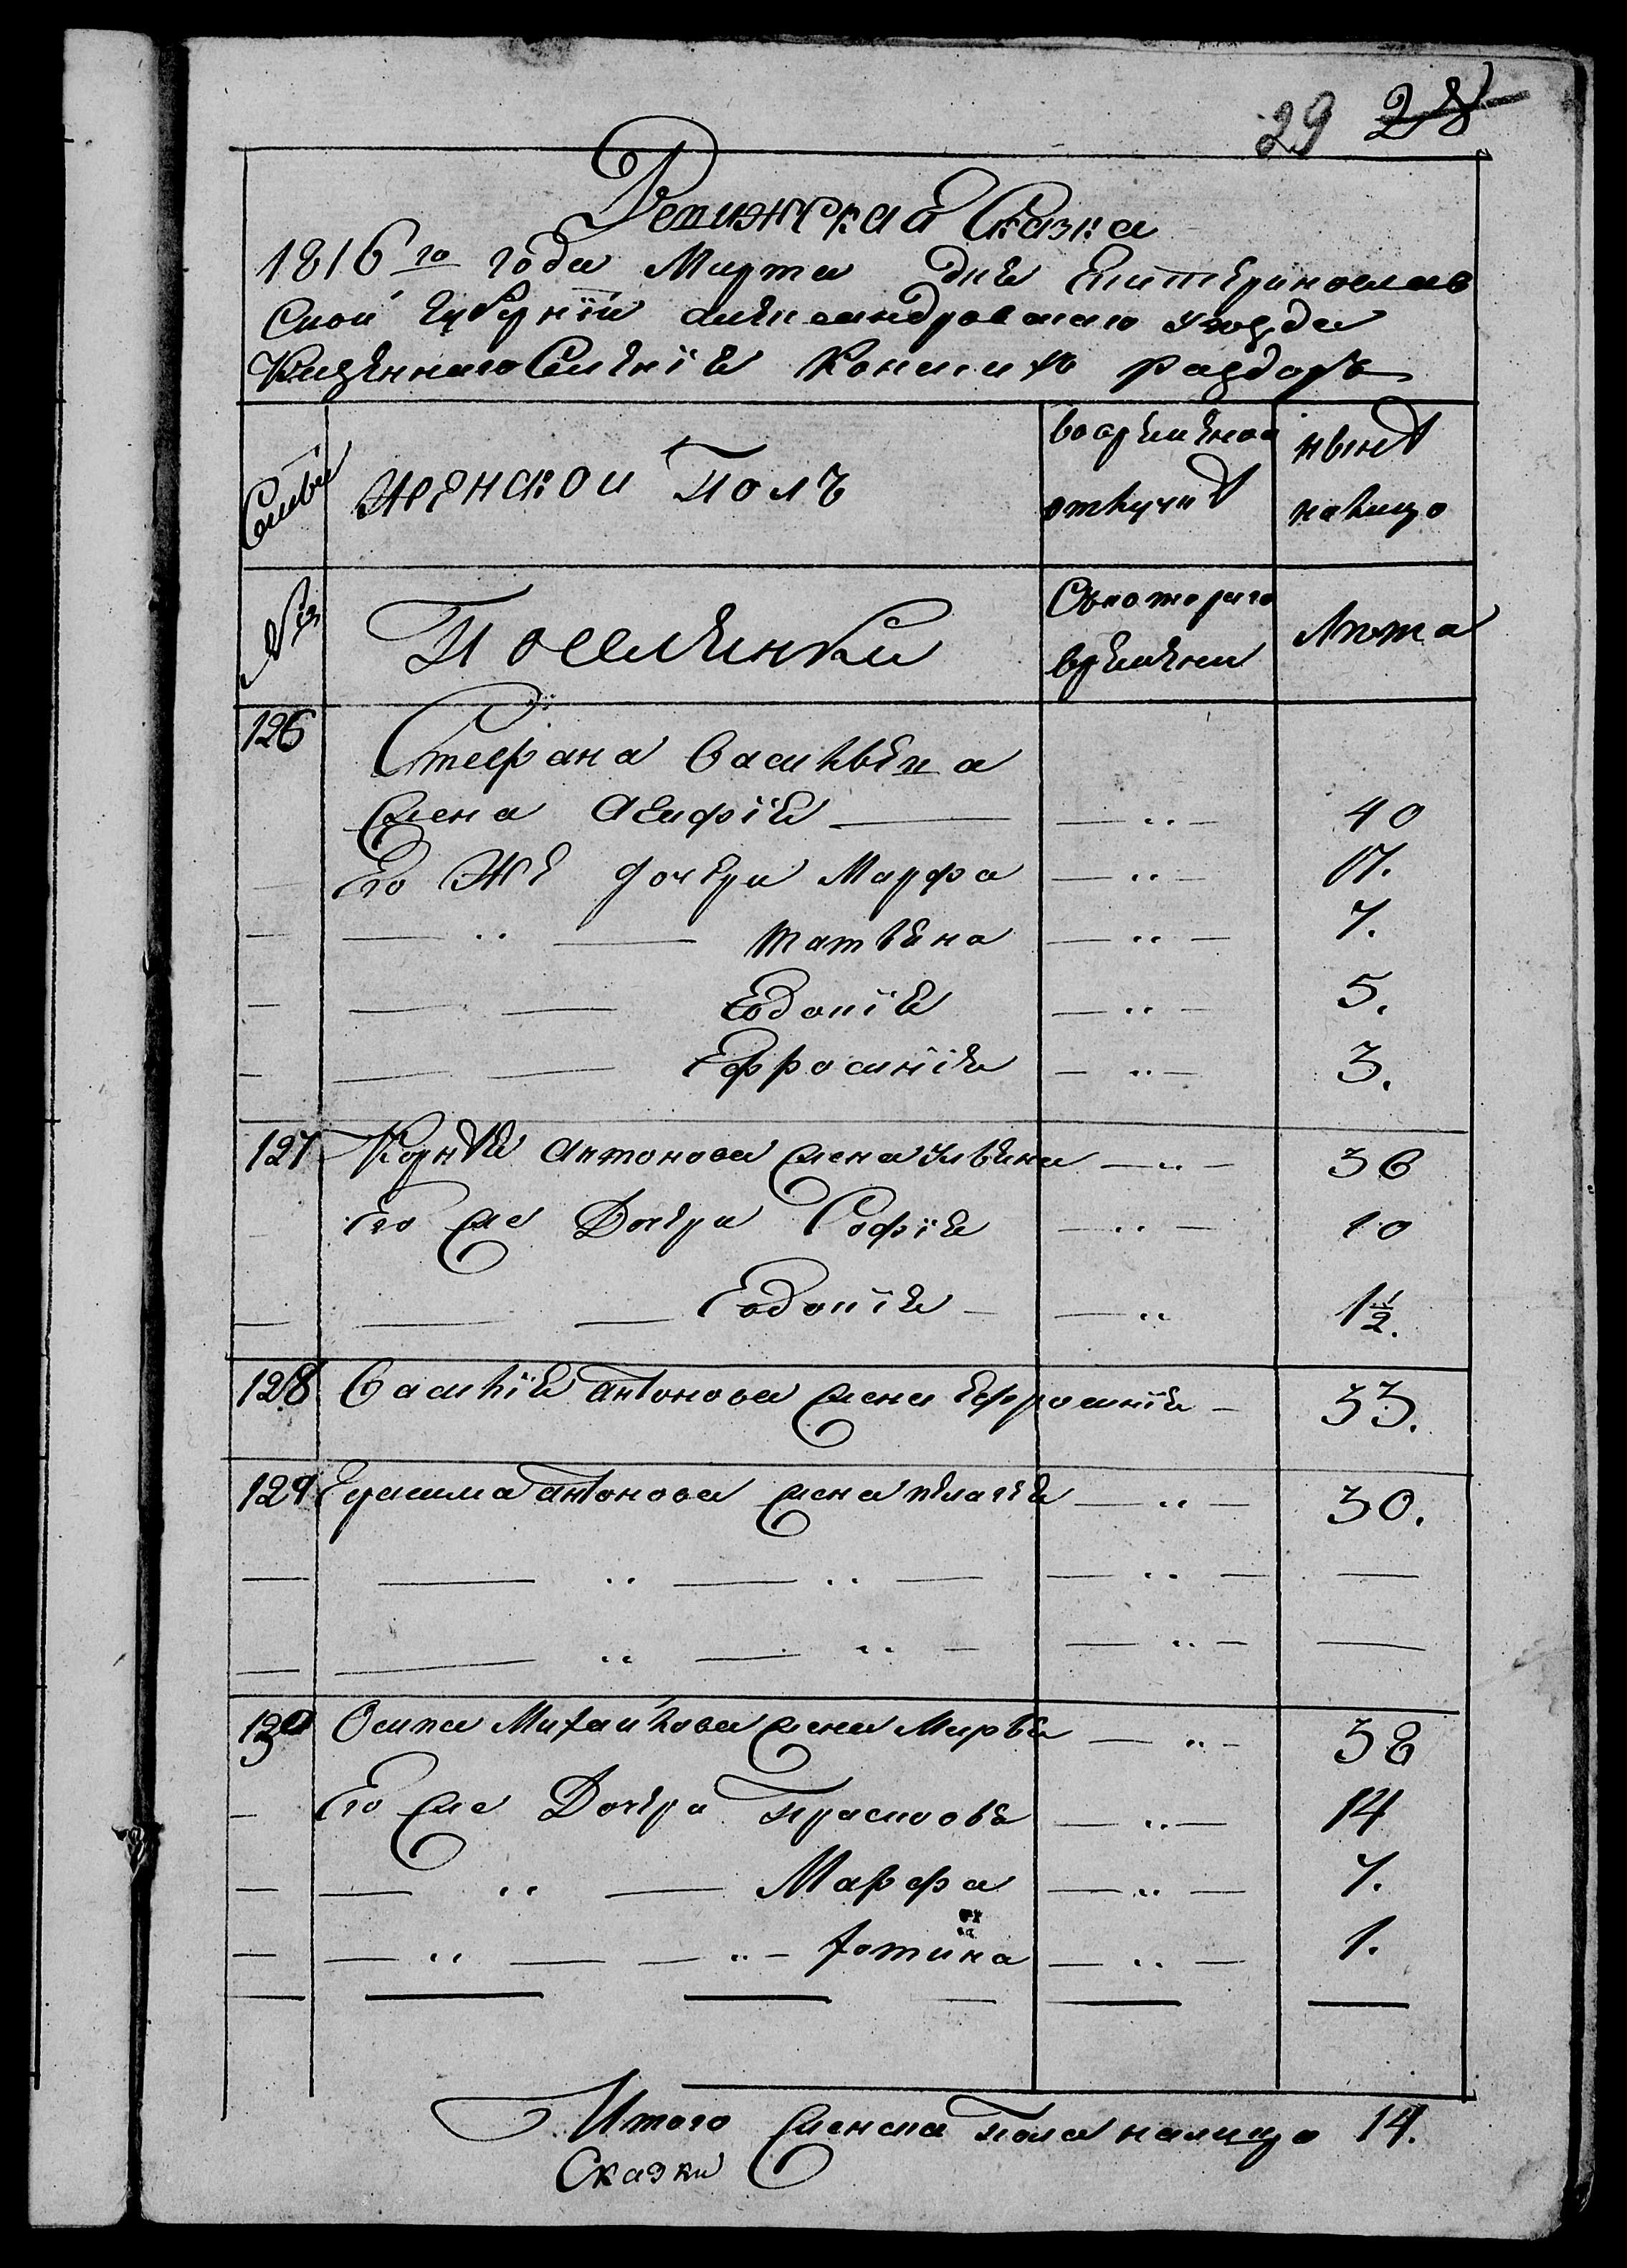 29 28
Ревижская Сказка
1816го года Марта дня Екатеринослав
Ской Губернии александровскаго уезда
Казеннаго Селения Конских раздоръ
Семьи
женской Полъ
вовременной отлучке
ныне налицо
№
Поселянки
Скотораго времени
Лета
126 Стефана Васильева
жена Агафия — „ — 40
Его Же дочери Марфа — „ — 17.
— „ — татьяна — „ — 7.
— — — Евдокия — „ — 5.
— — — Ефросиния — „ — 3.
127 Корнея антонова жена ульяна — „ — 36
Его же Дочери София — „ — 10
— — — Евдокия — — „ 1½.
128 Василия антонова жена Ефросиния — 33.
129 Герасима антонова жена пелагея — „ — 30.
— — „ — „ — — „ — —
— — „ — „ — — „ — —
130 Осипа Михайлова жена Марья — „ — 38
— Его же Дочери Прасковья — „ — 14
— — „ — Марфа — „ — 7.
— — „ — — „ — фотина — „ — 1.
Итого женска Пола налицо 14.
Сказки